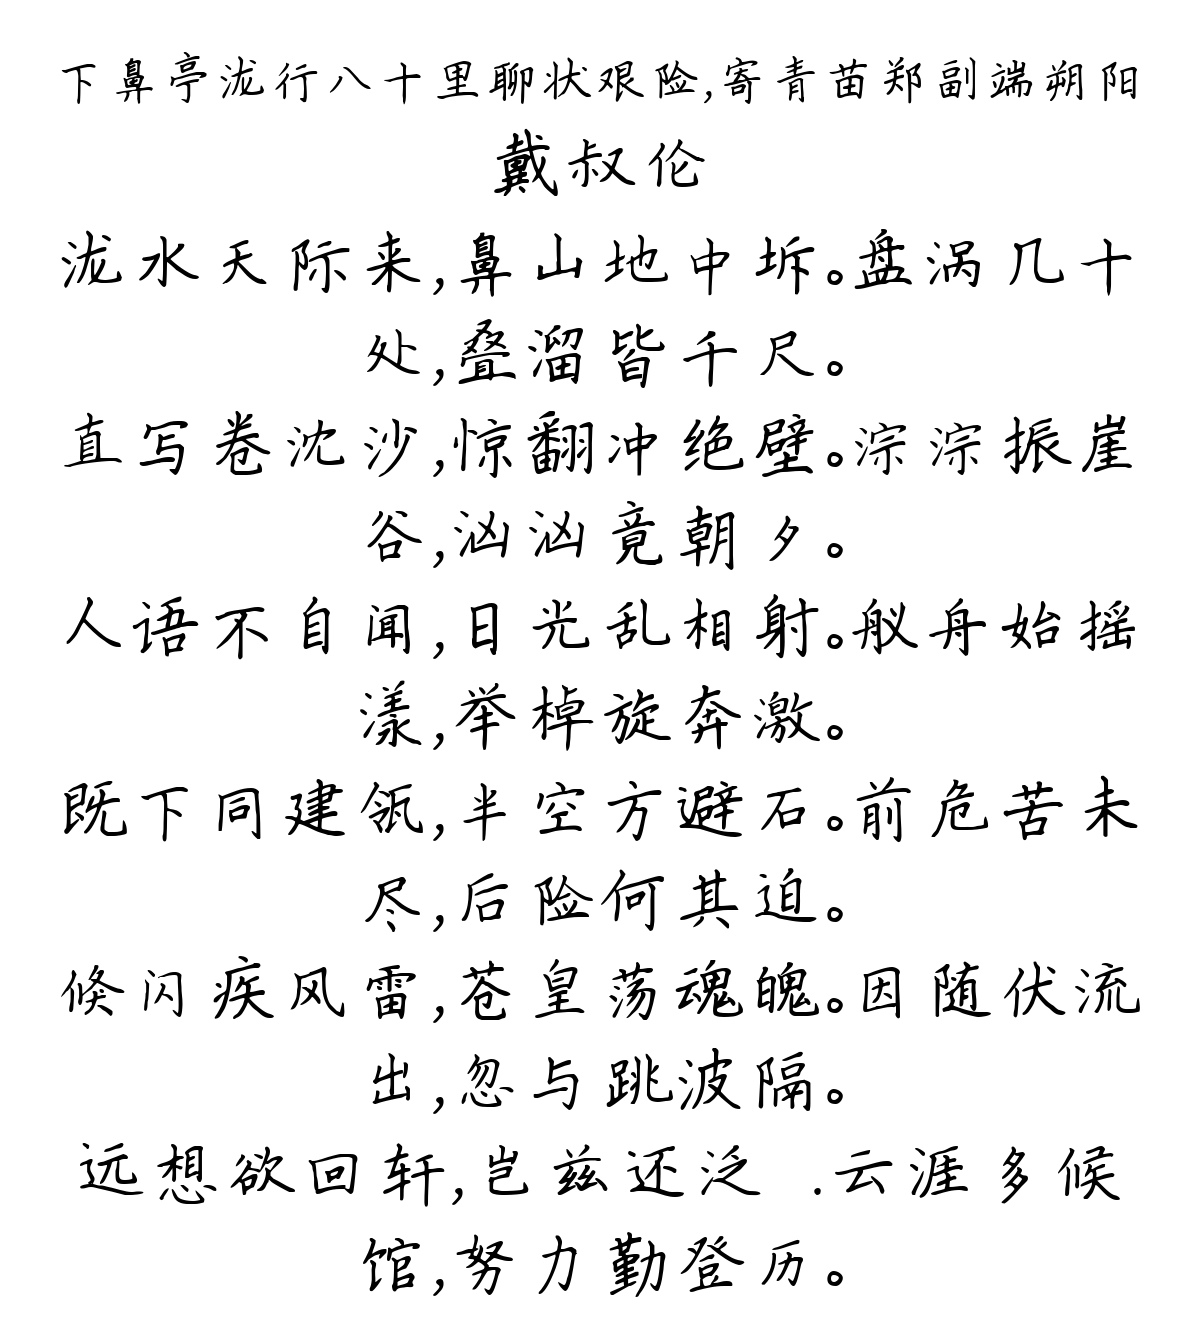 下鼻亭泷行八十里聊状艰险,寄青苗郑副端朔阳
戴叔伦
泷水天际来,鼻山地中坼。盘涡几十
处,叠溜皆千尺。
直写卷沈沙,惊翻冲绝壁。淙淙振崖
谷,汹汹竟朝夕。
人语不自闻,日光乱相射。舣舟始摇
漾,举棹旋奔激。
既下同建瓴,半空方避石。前危苦未
尽,后险何其迫。
倏闪疾风雷,苍皇荡魂魄。因随伏流
出,忽与跳波隔。
远想欲回轩,岂兹还泛 .云涯多候
馆,努力勤登历。